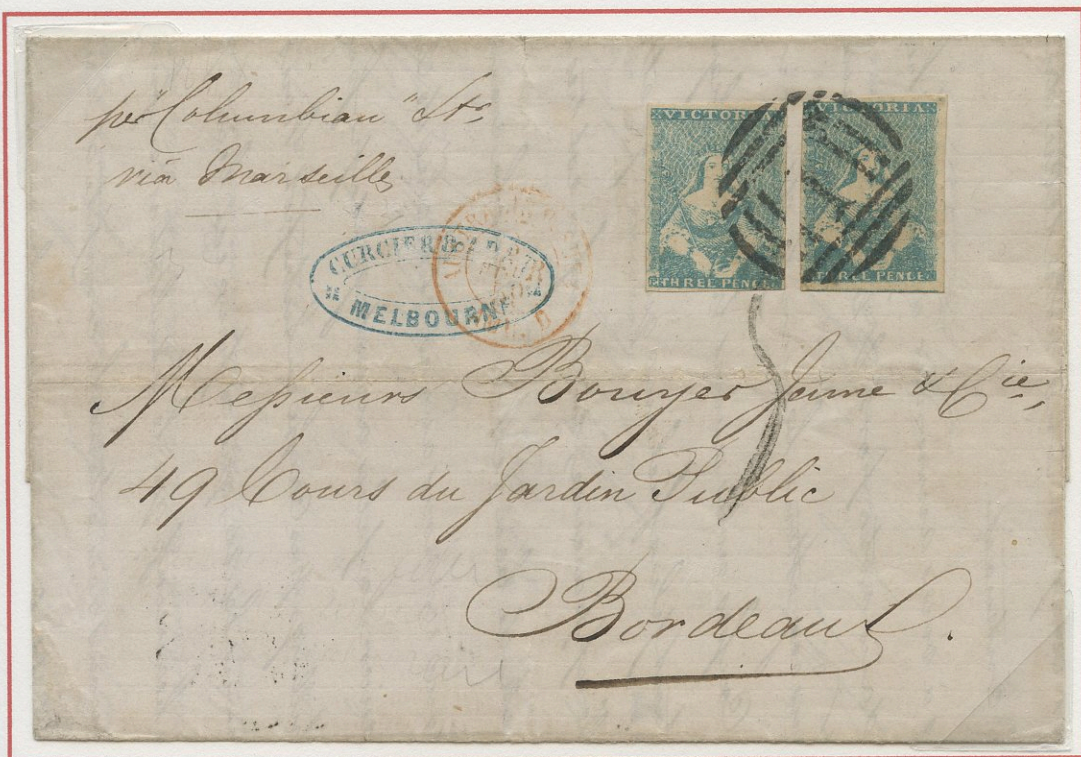 per "Columbian" Str
via Marseille
VICTORIA
THREE PENCE
VICTORIA
THREE PENCE
MELBOURNE
Messieurs Bouyer Jeune & Cie,
49 Cours du Jardin Public
Bordeaux.